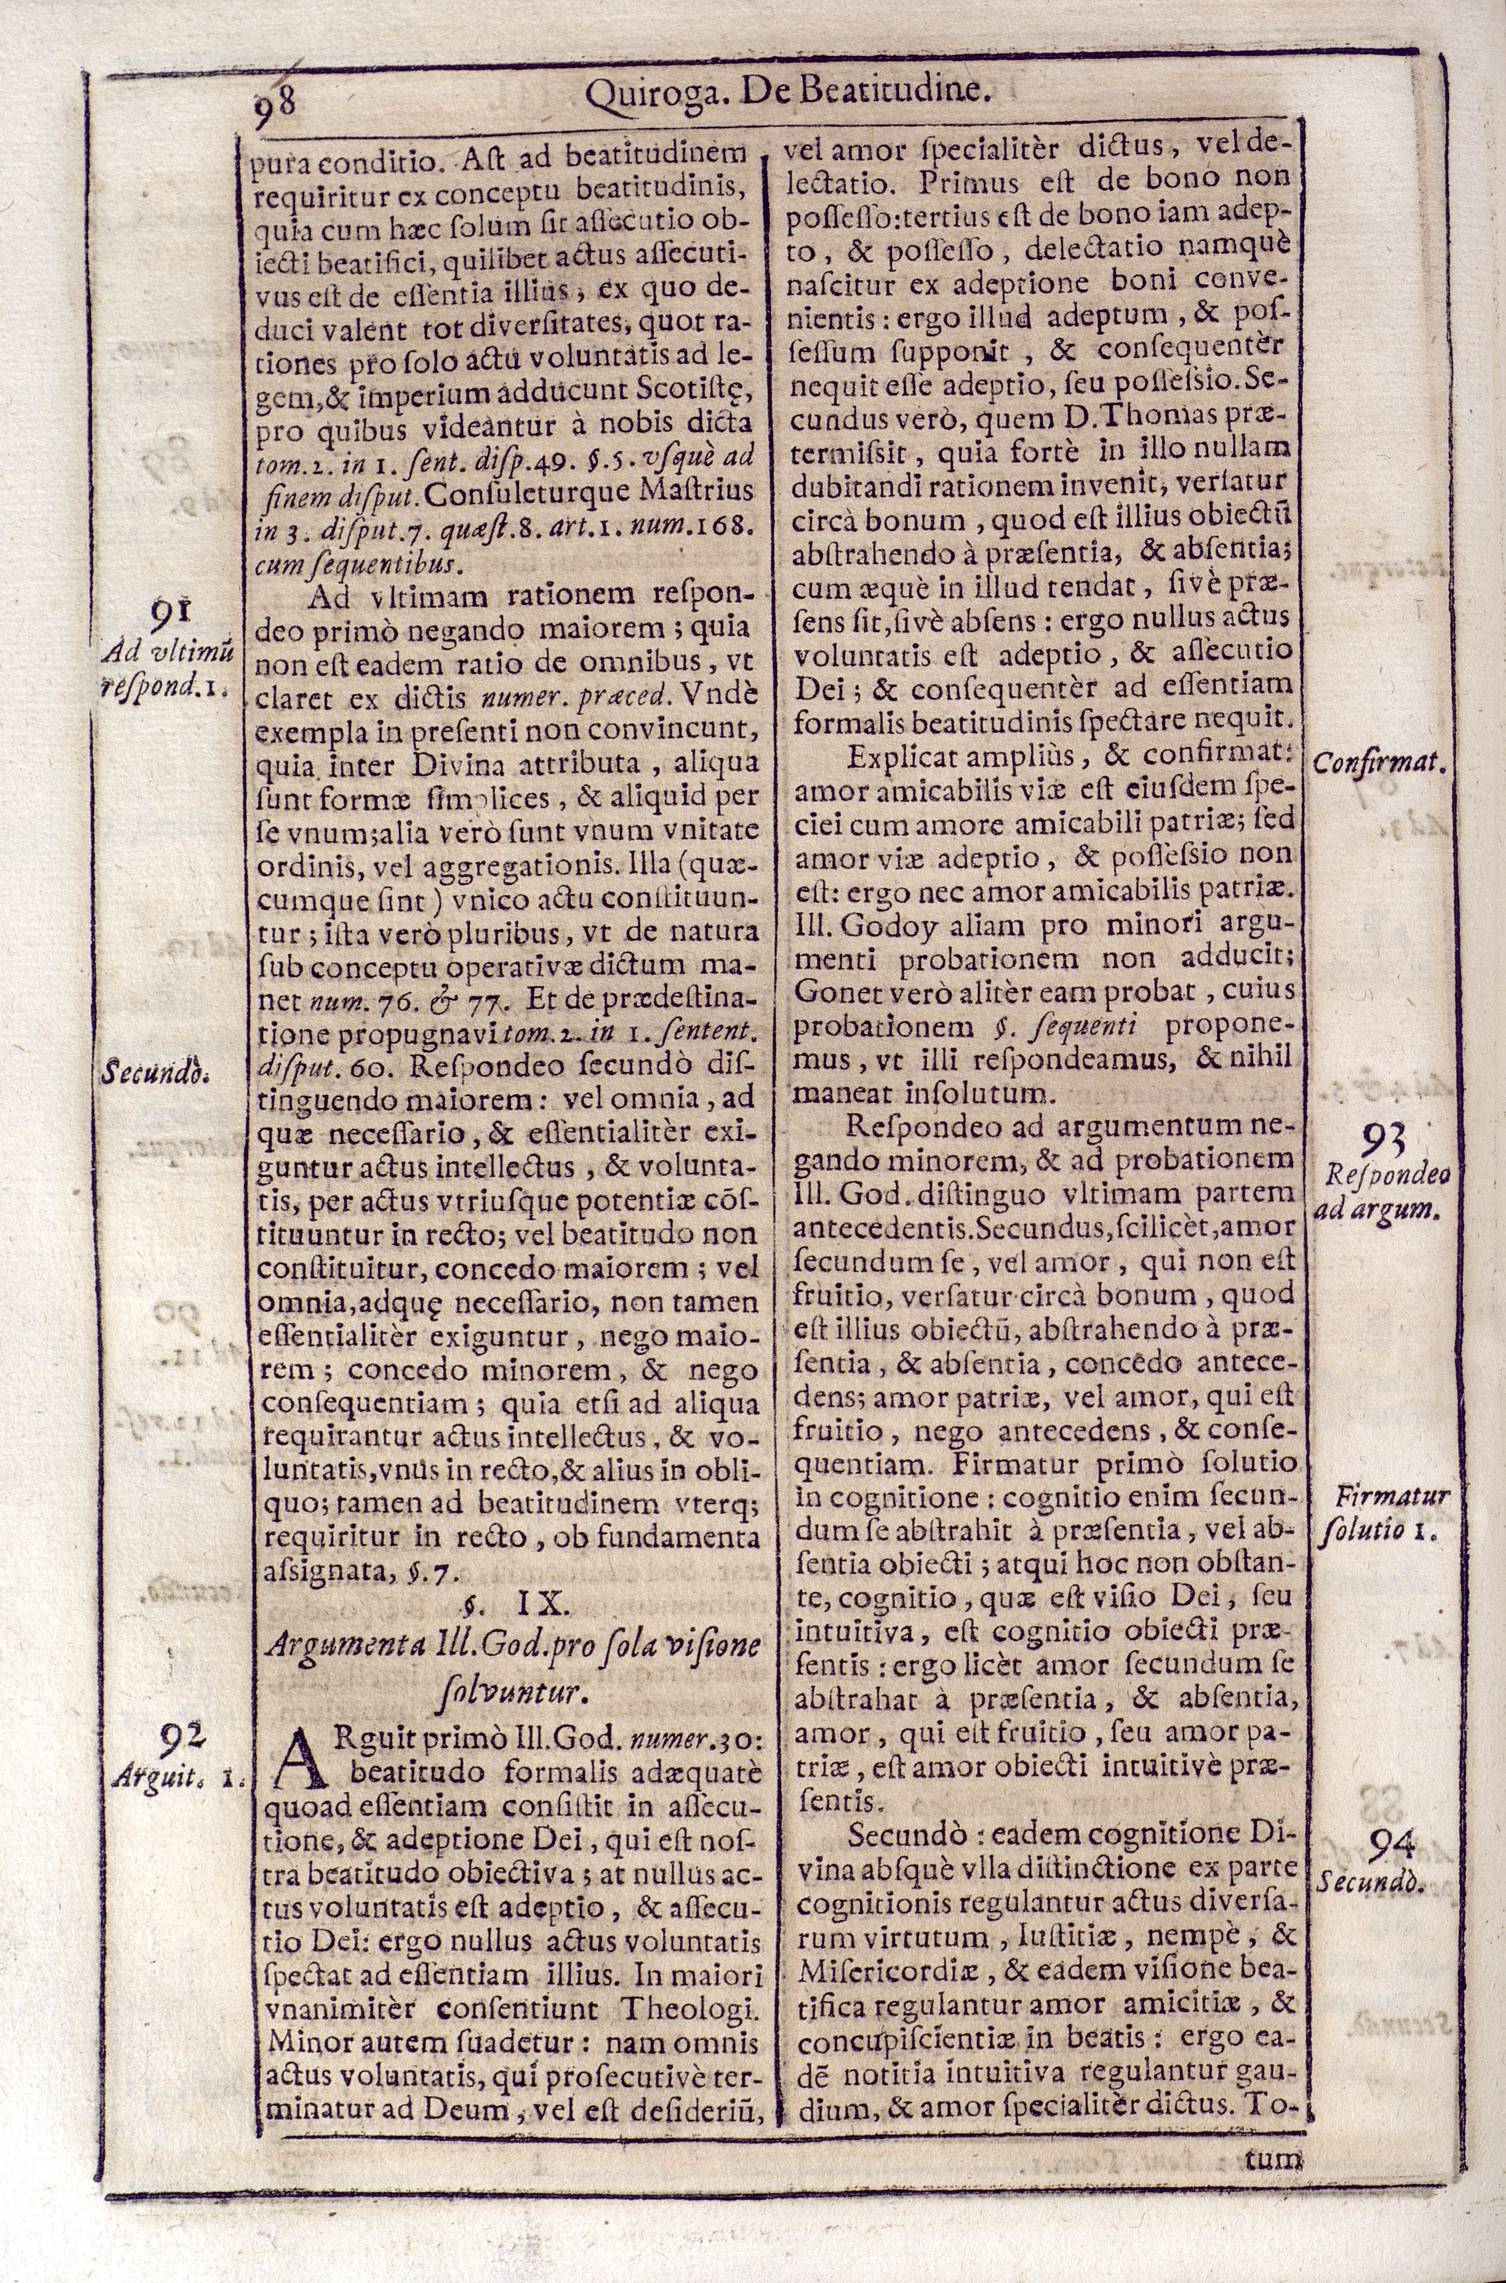 98
Quiroga. De Beatitudine.
pura conditio. Ast ad beatitudinem
requiritur ex conceptu beatitudinis,
quia cum hæc ſolum ſit aſſecutio ob-
iecti beatifici, quilibet actus aſſecuti-
vus eſt de eſſentia illius, ex quo de-
duci valent tot diverſitates, quot ra-
tiones pro ſolo actu voluntatis ad le-
gem, & imperium adducunt Scotiſtę,
pro quibus videantur à nobis dicta
tom. 2. in 1. ſent. diſp. 49. §. 5. vſquè ad
finem diſput. Conſuleturque Maſtrius
in 3. diſput. 7. quæſt. 8. art. 1. num. 168.
cum ſequentibus.
91
Ad vltimũ
reſpond. 1.
Ad vltimam rationem reſpon-
deo primò negando maiorem; quia
non eſt eadem ratio de omnibus, vt
claret ex dictis numer. præced. Vndè
exempla in preſenti non convincunt,
quia inter Divina attributa, aliqua
ſunt formæ ſimplices, & aliquid per
ſe vnum; alia verò ſunt vnum vnitate
ordinis, vel aggregationis. Illa (quæ-
cumque ſint) vnico actu conſtituun-
tur; iſta verò pluribus, vt de natura
ſub conceptu operativæ dictum ma-
net num. 76. & 77. Et de prædeſtina-
tione propugnavi tom. 2. in 1. ſentent.
Secundò.
diſput. 60. Reſpondeo ſecundò diſ-
tinguendo maiorem: vel omnia, ad
quæ neceſſario, & eſſentialitèr exi-
guntur actus intellectus, & volunta-
tis, per actus vtriuſque potentiæ cõſ-
tituuntur in recto; vel beatitudo non
conſtituitur, concedo maiorem; vel
omnia, adquę neceſſario, non tamen
eſſentialitèr exiguntur, nego maio-
rem; concedo minorem, & nego
conſequentiam; quia etſi ad aliqua
requirantur actus intellectus, & vo-
luntatis, vnus in recto, & alius in obli-
quo; tamen ad beatitudinem vterq;
requiritur in recto, ob fundamenta
aſsignata, §. 7.
§. IX.
Argumenta Ill. God. pro ſola viſione
ſolvuntur.
92
Arguit. 1.
ARguit primò Ill. God. numer. 30:
beatitudo formalis adæquatè
quoad eſſentiam conſiſtit in aſſecu-
tione, & adeptione Dei, qui eſt noſ-
tra beatitudo obiectiva; at nullus ac-
tus voluntatis eſt adeptio, & aſſecu-
tio Dei: ergo nullus actus voluntatis
ſpectat ad eſſentiam illius. In maiori
vnanimitèr conſentiunt Theologi.
Minor autem ſuadetur: nam omnis
actus voluntatis, qui proſecutivè ter-
minatur ad Deum, vel eſt deſideriũ,
vel amor ſpecialitèr dictus, vel de-
lectatio. Primus eſt de bono non
poſſeſſo: tertius eſt de bono iam adep-
to, & poſſeſſo, delectatio namquè
naſcitur ex adeptione boni conve-
nientis: ergo illud adeptum, & poſ-
ſeſſum ſupponit, & conſequentèr
nequit eſſe adeptio, ſeu poſſeſsio. Se-
cundus verò, quem D. Thomas præ-
termiſsit, quia fortè in illo nullam
dubitandi rationem invenit, verſatur
circà bonum, quod eſt illius obiectũ
abſtrahendo à præſentia, & abſentia;
cum æquè in illud tendat, ſivè præ-
ſens ſit, ſivè abſens: ergo nullus actus
voluntatis eſt adeptio, & aſſecutio
Dei; & conſequentèr ad eſſentiam
formalis beatitudinis ſpectare nequit.
Confirmat.
Explicat ampliùs, & confirmat:
amor amicabilis viæ eſt eiuſdem ſpe-
ciei cum amore amicabili patriæ; ſed
amor viæ adeptio, & poſſeſsio non
eſt: ergo nec amor amicabilis patriæ.
Ill. Godoy aliam pro minori argu-
menti probationem non adducit;
Gonet verò alitèr eam probat, cuius
probationem §. ſequenti propone-
mus, vt illi reſpondeamus, & nihil
maneat inſolutum.
93
Reſpondeo
ad argum.
Reſpondeo ad argumentum ne-
gando minorem, & ad probationem
Ill. God. diſtinguo vltimam partem
antecedentis. Secundus, ſcilicèt, amor
ſecundum ſe, vel amor, qui non eſt
fruitio, verſatur circà bonum, quod
eſt illius obiectũ, abſtrahendo à præ-
ſentia, & abſentia, concedo antece-
dens; amor patriæ, vel amor, qui eſt
fruitio, nego antecedens, & conſe-
quentiam. Firmatur primò ſolutio
Firmatur
ſolutio 1.
in cognitione: cognitio enim ſecun-
dum ſe abſtrahit à præſentia, vel ab-
ſentia obiecti; atqui hoc non obſtan-
te, cognitio, quæ eſt viſio Dei, ſeu
intuitiva, eſt cognitio obiecti præ-
ſentis: ergo licèt amor ſecundum ſe
abſtrahat à præſentia, & abſentia,
amor, qui eſt fruitio, ſeu amor pa-
triæ, eſt amor obiecti intuitivè præ-
ſentis.
94
Secundò.
Secundò: eadem cognitione Di-
vina abſquè vlla diſtinctione ex parte
cognitionis regulantur actus diverſa-
rum virtutum, Iuſtitiæ, nempè, &
Miſericordiæ, & eadem viſione bea-
tifica regulantur amor amicitiæ, &
concupiſcientiæ in beatis: ergo ea-
dẽ notitia intuitiva regulantur gau-
dium, & amor ſpecialitèr dictus. To-
tum